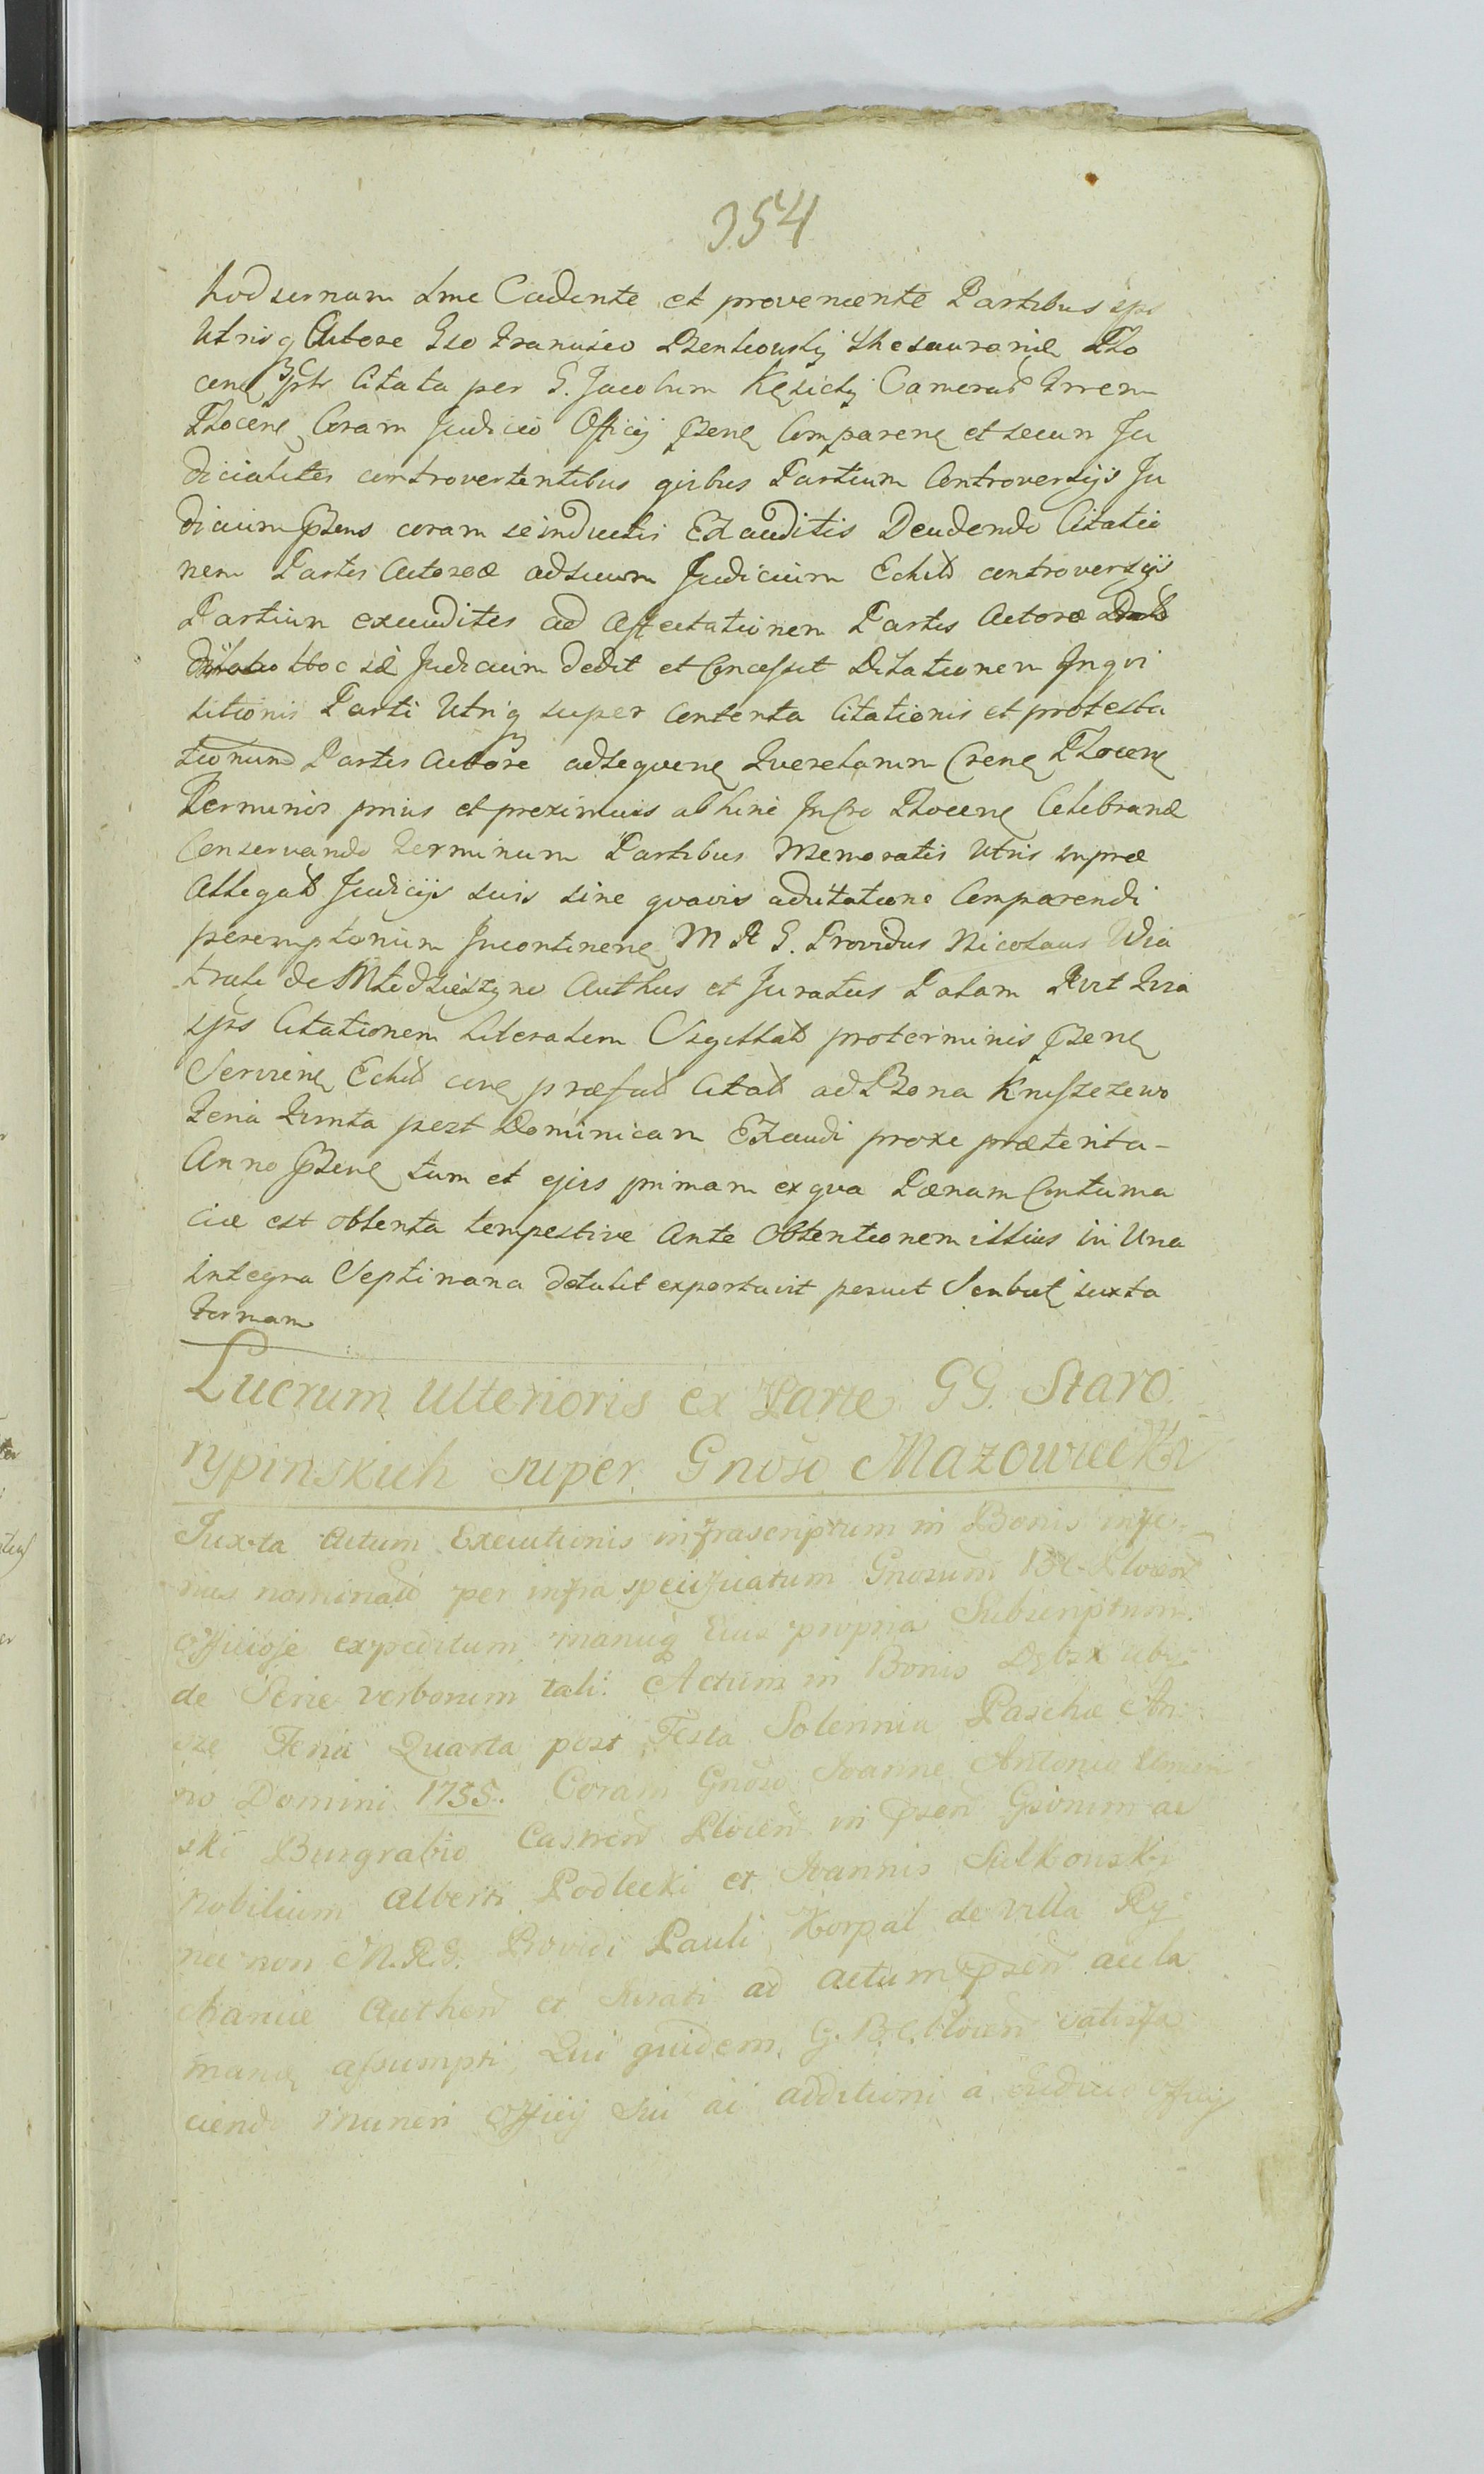 354
hodiernam dme Cadente et proveniente Partibus ips
Utrisq Actore Gso Francisco Bzenkowskij Thesaurarid Plo
cenę Citata per G. Jacobum Kęsickij Camerad Trrem
Plocenę Coram Judicio Officij Pseng Comparenę et secum Ju
dicialiter controvertentibus qribus Partium Controversijs Ju
dicium Psens coram se inductis Exauditis Deudendo Citatio
nem Partis Actoreæ ad suum Judicium Echib controversijs
Partium exauditis ad Affectationem Partis Actoræ
hoc id Judicium dedit et Concessit Dilationem Inqui
sitionis Parti Utriq super Contenta Citationis et protesta
tionum Partis Actore adsequenę Querelarum Crenę Plocenę
Terminis prius et proximius abhinc In Cro Plocenę Celebrand
Conservando Terminum Partibus Memoratis Utris supræ
Allegat Judicijs suis sine quavis aditatione Comparendi
peremptorium Incontinenę M R G. Providus Nicolaus Wia
trak de Młodzieszyno Authus et Juratus Palam Rvit Qvia
ips Citationem Literalem Sigillat proterminis Psenę
Servienę Echib præfat Citat ad Bona Kniszezewo
Feria Qvinta post Dominicam Exaudi proxe præterita-
Anno Psenę tum et ejus primam ex qva Pænam Contuma
ciæ est obtenta tempestive Ante Obtentionem illius in Una
integra Septimana detulit exportavit posuit juxta
formam
Lucrum Ulterioris ex Parte GG. Staro
rypinskich super Gnoso Mazowiecki
Juxta Actum Executionis infrascriptum in Bonis infe-
rius nominatd per infra specificatum Gnosum B.C. Plocend
Officiose expeditum manuq Eius propria Subscriptum
de Serie verborum tali: Actum in Bonis
Feria Quarta post Festa Solennia Paschæ An
no Domini 1755. Coram Gnoso Joanne Antonio
ski Burgrabio Castrend Plocend in Psend Gsorum ac
Nobilium Alberti Podlecki et Joannis Sulkowski
nec non M.R.G. Providi Pauli Korpal de villa Ry
chanice Authend et Jurati ad actum psend aela
mand assumpti, Qui quidem G. B.C. Plocend satisfa
ciendo muneri Officij sui ac additioni a Judicio Officij